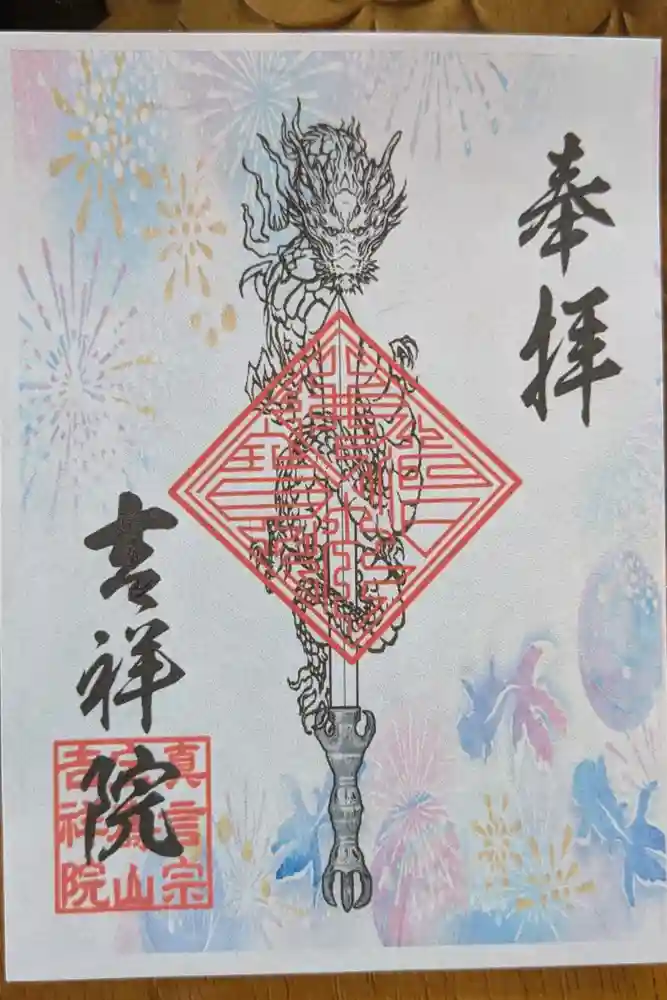 奉拝
吉祥院
真言宗
吉祥院